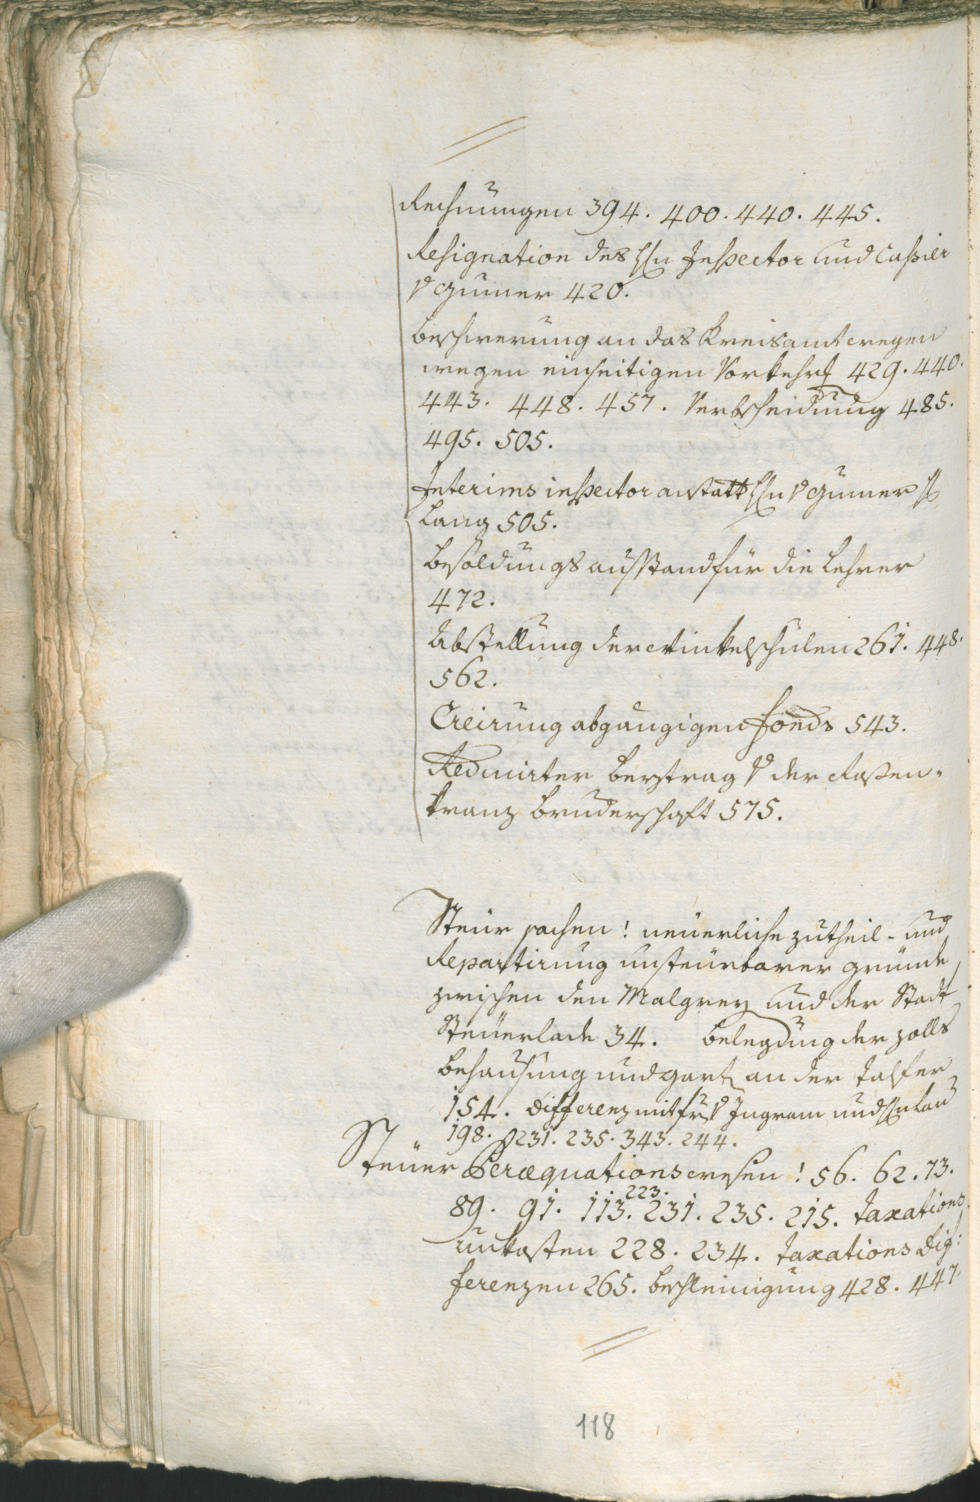 Rechnungen 394. 400. 440. 445.
Resignation des Hn Inspector und Cassier
v Gumer 420.
Beschwerung an das Kreisamt wegen
wegen einseitigen Vorkehr 429. 440.
443. 448. 457. Verbscheidung 485.
495. 505.
Interims inspector anstatt Hn v Gumer H
Lang 505.
Besoldungs ausstand für die Lehrer
472.
Abstellung der Winkelschulen 261. 448.
562.
Creirung abgängigen Fonds 543.
der Rosen-
kranz Bruderschaft 575.
Steür sachen! neuerliche zutheil- und
Repartirung unsteürbarer gründe
zwischen den Malgrey und der Stadt
Steuerlade 34. Belegung der zolls
Behausung und gart an der Talfer
154. Differenz mit fr v Ingram und
198. 231. 235. 343. 244.
Steuer Peræquationswesen! 56. 62. 73.
223.
89. 91. 113. 231. 235. 215. Taxations
unkosten 228. 234. Taxations Dif:
ferenzen 265. Beschleinigung 428. 447.
118